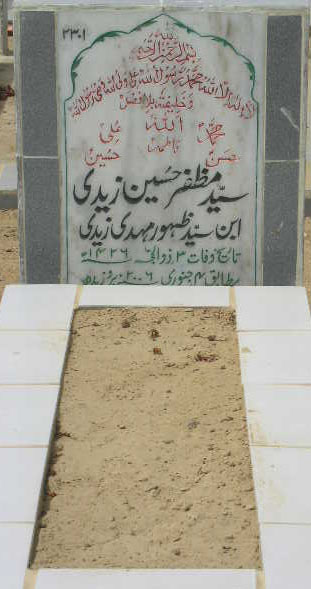 ۲۳۰۱
بسم اللہ الرحمن الرحیم
لا الہ الا اللہ محمد رسول اللہ علی ولی اللہ وصی رسول اللہ
و خلیفتہ بلا فصل
محمد اللہ علی
فاطمہ
حسن حسین
سید مظفر حسین زیدی
ابن سید ظہور مہدی زیدی
تاریخ وفات ۳ ذوالحجہ ۱۴۲۶ھ
بمطابق ۴ جنوری ۲۰۰۶ء بروز بدھ